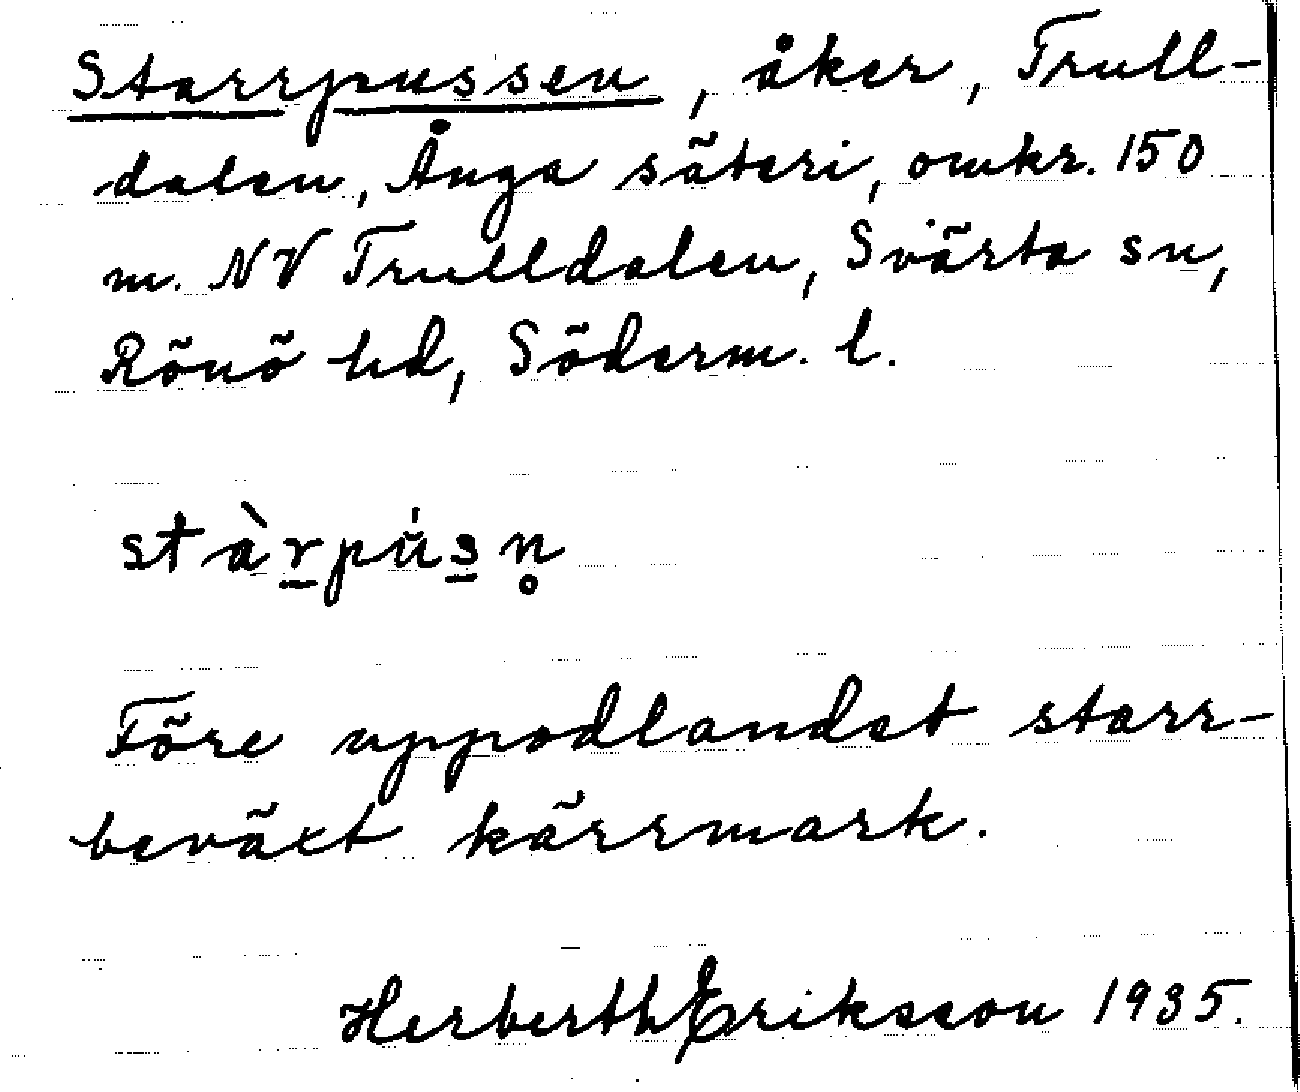 Starrpussen, åker, Trull-
dalen, Ånga säteri, omkr. 150
m. NV Trulldalen, Svärta sn,
Rönö hd, Söderm. l.
stàr̲pŭ̍s̲n̥
Före uppodlandet starr-
beväxt kärrmark.
Herberth Eriksson 1935.